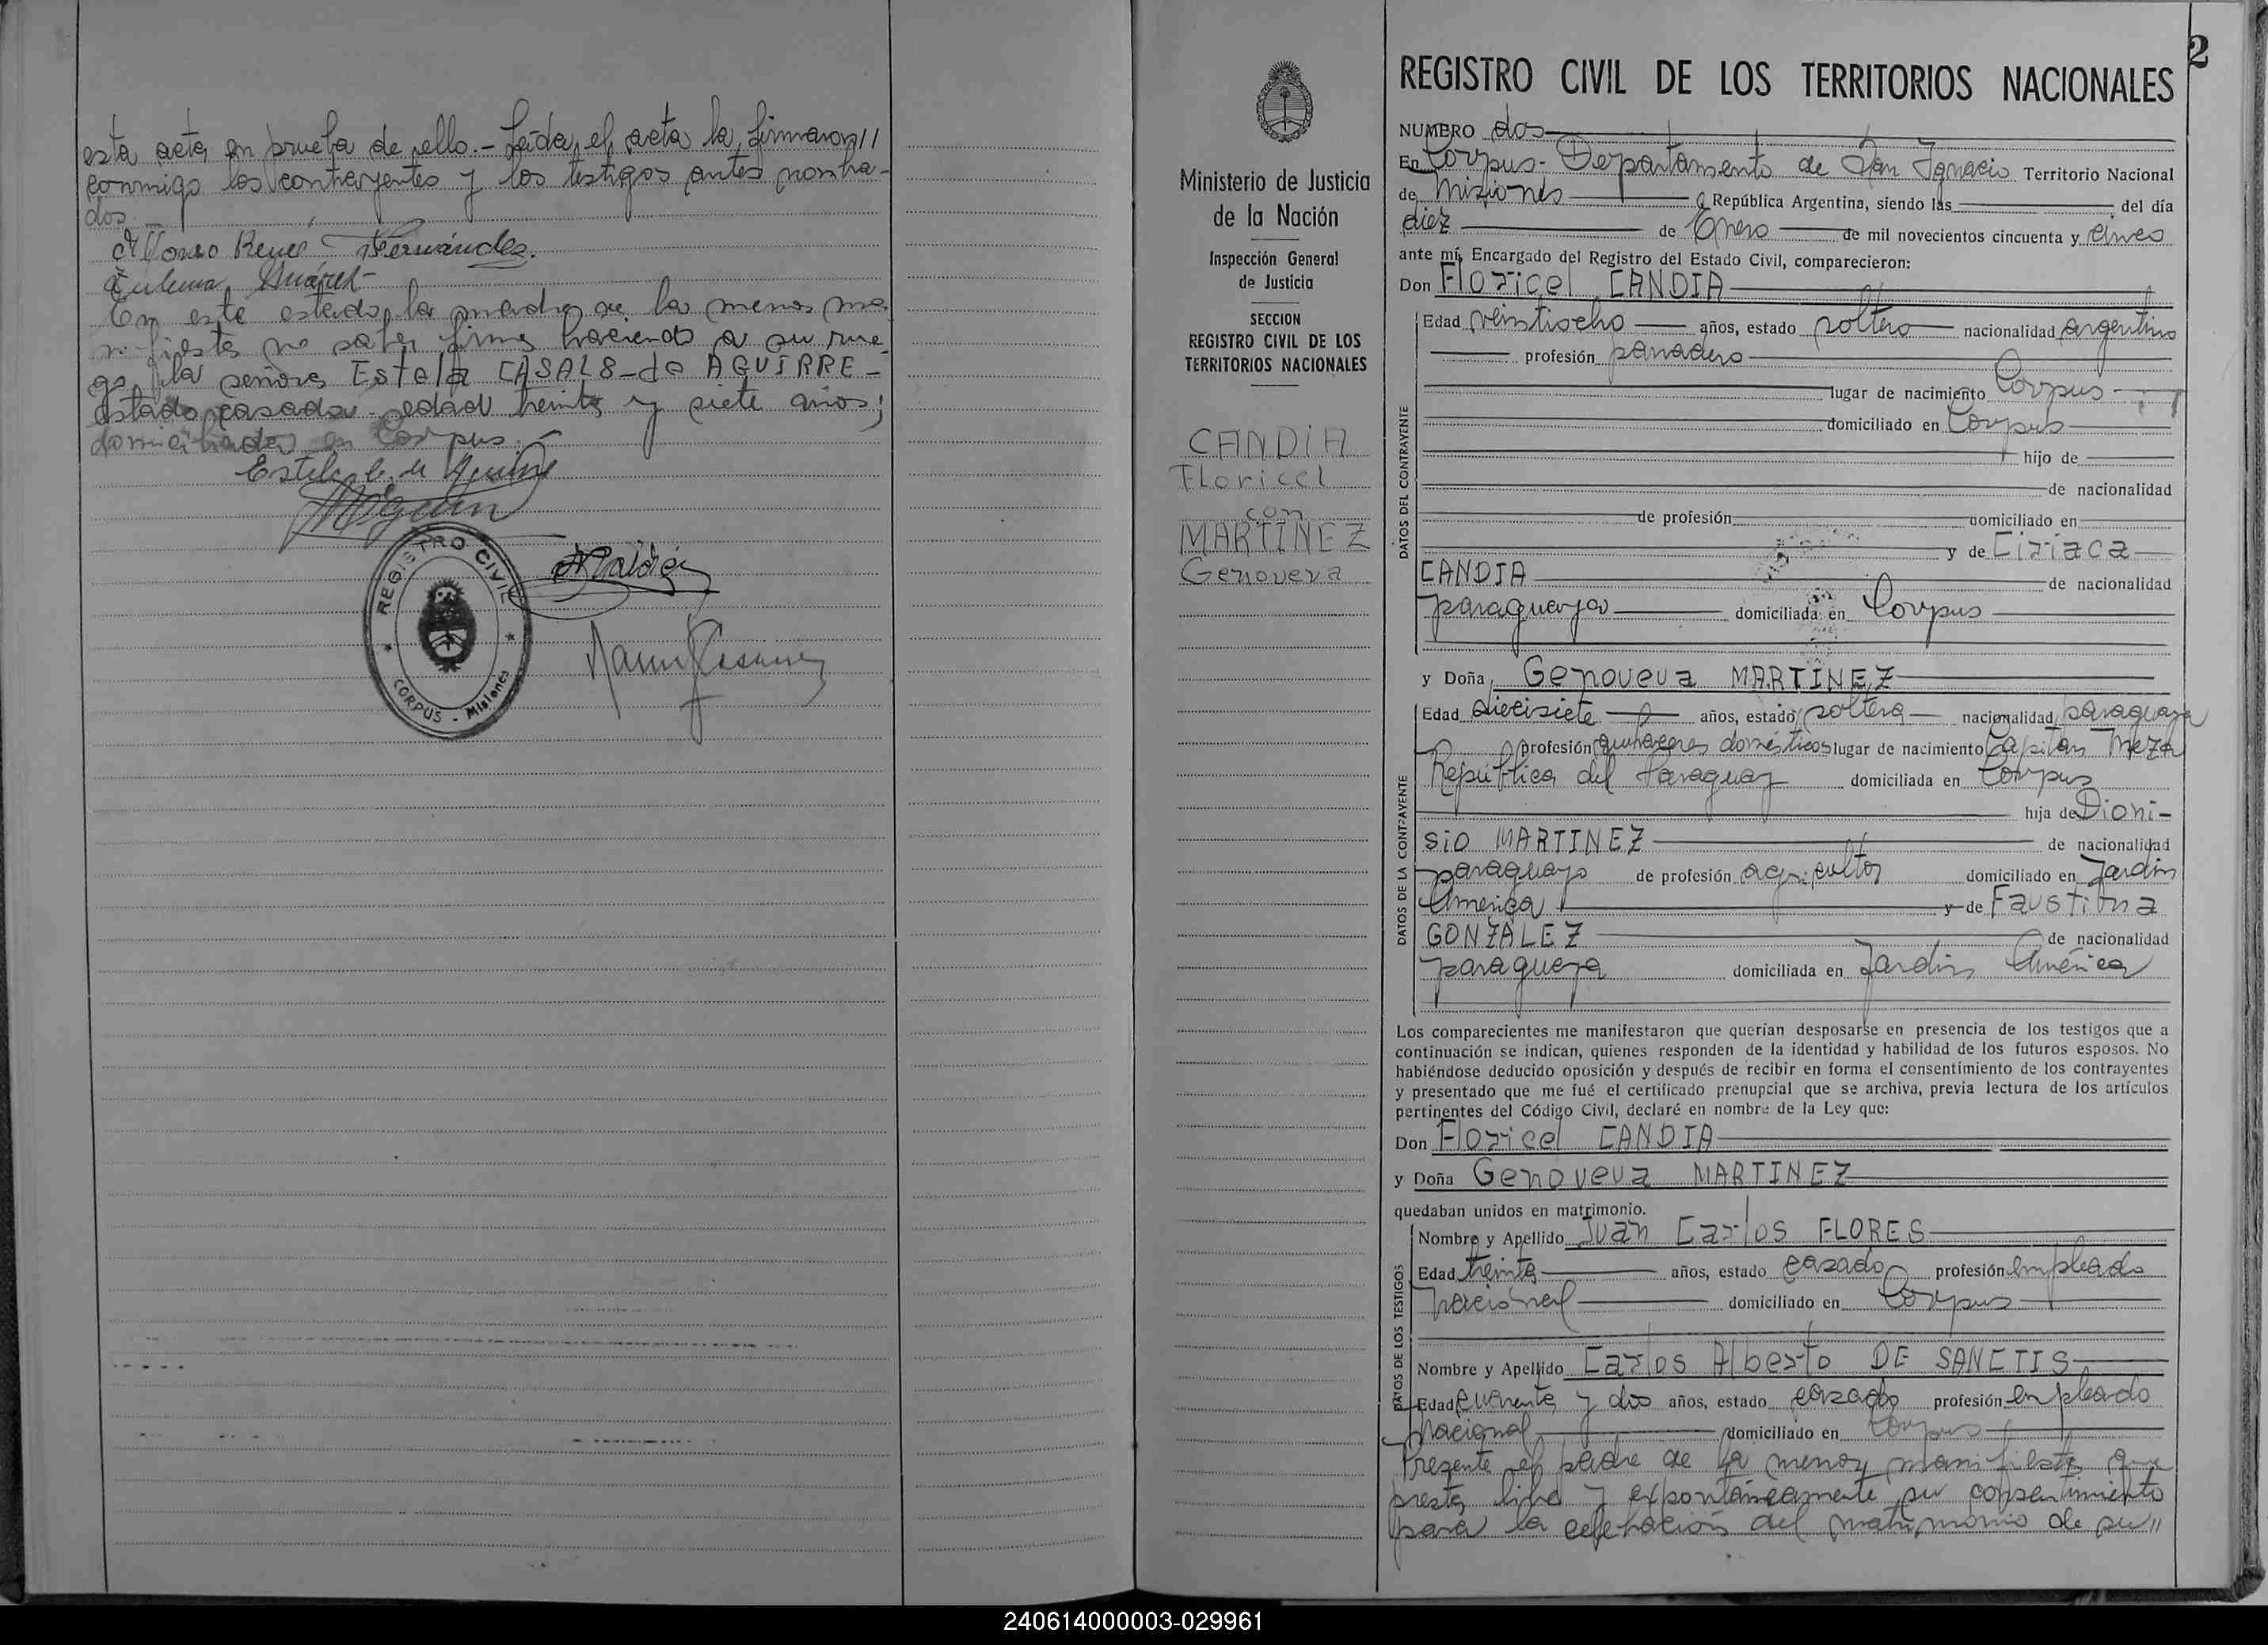 esta acta en prueba de ello.- Leída el acta la firmaron//
conmigo los contrayentes y los testigos antes nombra-
dos
Alfonso René Fernández.
Zulema Suárez
En este estado, la madre de la menor ma-
nifiesta no saber firmar haciendo a su rue-
go, la señora Estela CASALS de AGUIRRE-
estado casada - edad treinta y siete años;
domiciliada en Corpus.-
Estela C. de Aguirre
REGISTRO CIVIL
CORPUS - Misiones
Ministerio de Justicia
de la Nación
Inspección General
de Justicia
SECCION
REGISTRO CIVIL DE LOS
TERRITORIOS NACIONALES
CANDIA
Floricel
con
MARTINEZ
Genoveva
2
REGISTRO CIVIL DE LOS TERRITORIOS NACIONALES
NUMERO dos
En Corpus- Departamento de San Ignacio Territorio Nacional
de Misiones República Argentina, siendo las del día
diez de Enero de mil novecientos cincuenta y cinco
ante mí, Encargado del Registro del Estado Civil, comparecieron:
Don Floricel CANDIA
DATOS DEL CONTRAYENTE
Edad veintiocho años, estado soltero nacionalidad argentino
profesión panadero
lugar de nacimiento Corpus
domiciliado en Corpus
hijo de
de nacionalidad
de profesión domiciliado en
y de Ciriaca
CANDIA de nacionalidad
paraguaya domiciliada en Corpus
y Doña Genoveva MARTINEZ
DATOS DE LA CONTRAYENTE
Edad diecisiete años, estado soltera nacionalidad paraguaya
profesión quehaceres domésticos lugar de nacimiento Capitán Meza
República del Paraguay domiciliada en Corpus
hija de Dioni-
sio MARTINEZ de nacionalidad
paraguayo de profesión agricultor domiciliado en Jardín
América y de Faustina
GONZALEZ de nacionalidad
paraguaya domiciliada en Jardín América
Los comparecientes me manifestaron que querían desposarse en presencia de los testigos que a
continuación se indican, quienes responden de la identidad y habilidad de los futuros esposos. No
habiéndose deducido oposición y después de recibir en forma el consentimiento de los contrayentes
y presentado que me fué el certificado prenupcial que se archiva, previa lectura de los artículos
pertinentes del Código Civil, declaré en nombre de la Ley que:
Don Floricel CANDIA
y Doña Genoveva MARTINEZ
quedaban unidos en matrimonio.
DATOS DE LOS TESTIGOS
Nombre y Apellido Juan Carlos FLORES
Edad treinta años, estado casado profesión empleado
nacional domiciliado en Corpus
Nombre y Apellido Carlos Alberto DE SANCTIS
Edad cuarenta y dos años, estado casado profesión empleado
nacional domiciliado en Corpus
Presente el padre de la menor manifiesta que
presta libre y expontáneamente su consentimiento
para la celebración del matrimonio de su//
240614000003-029961